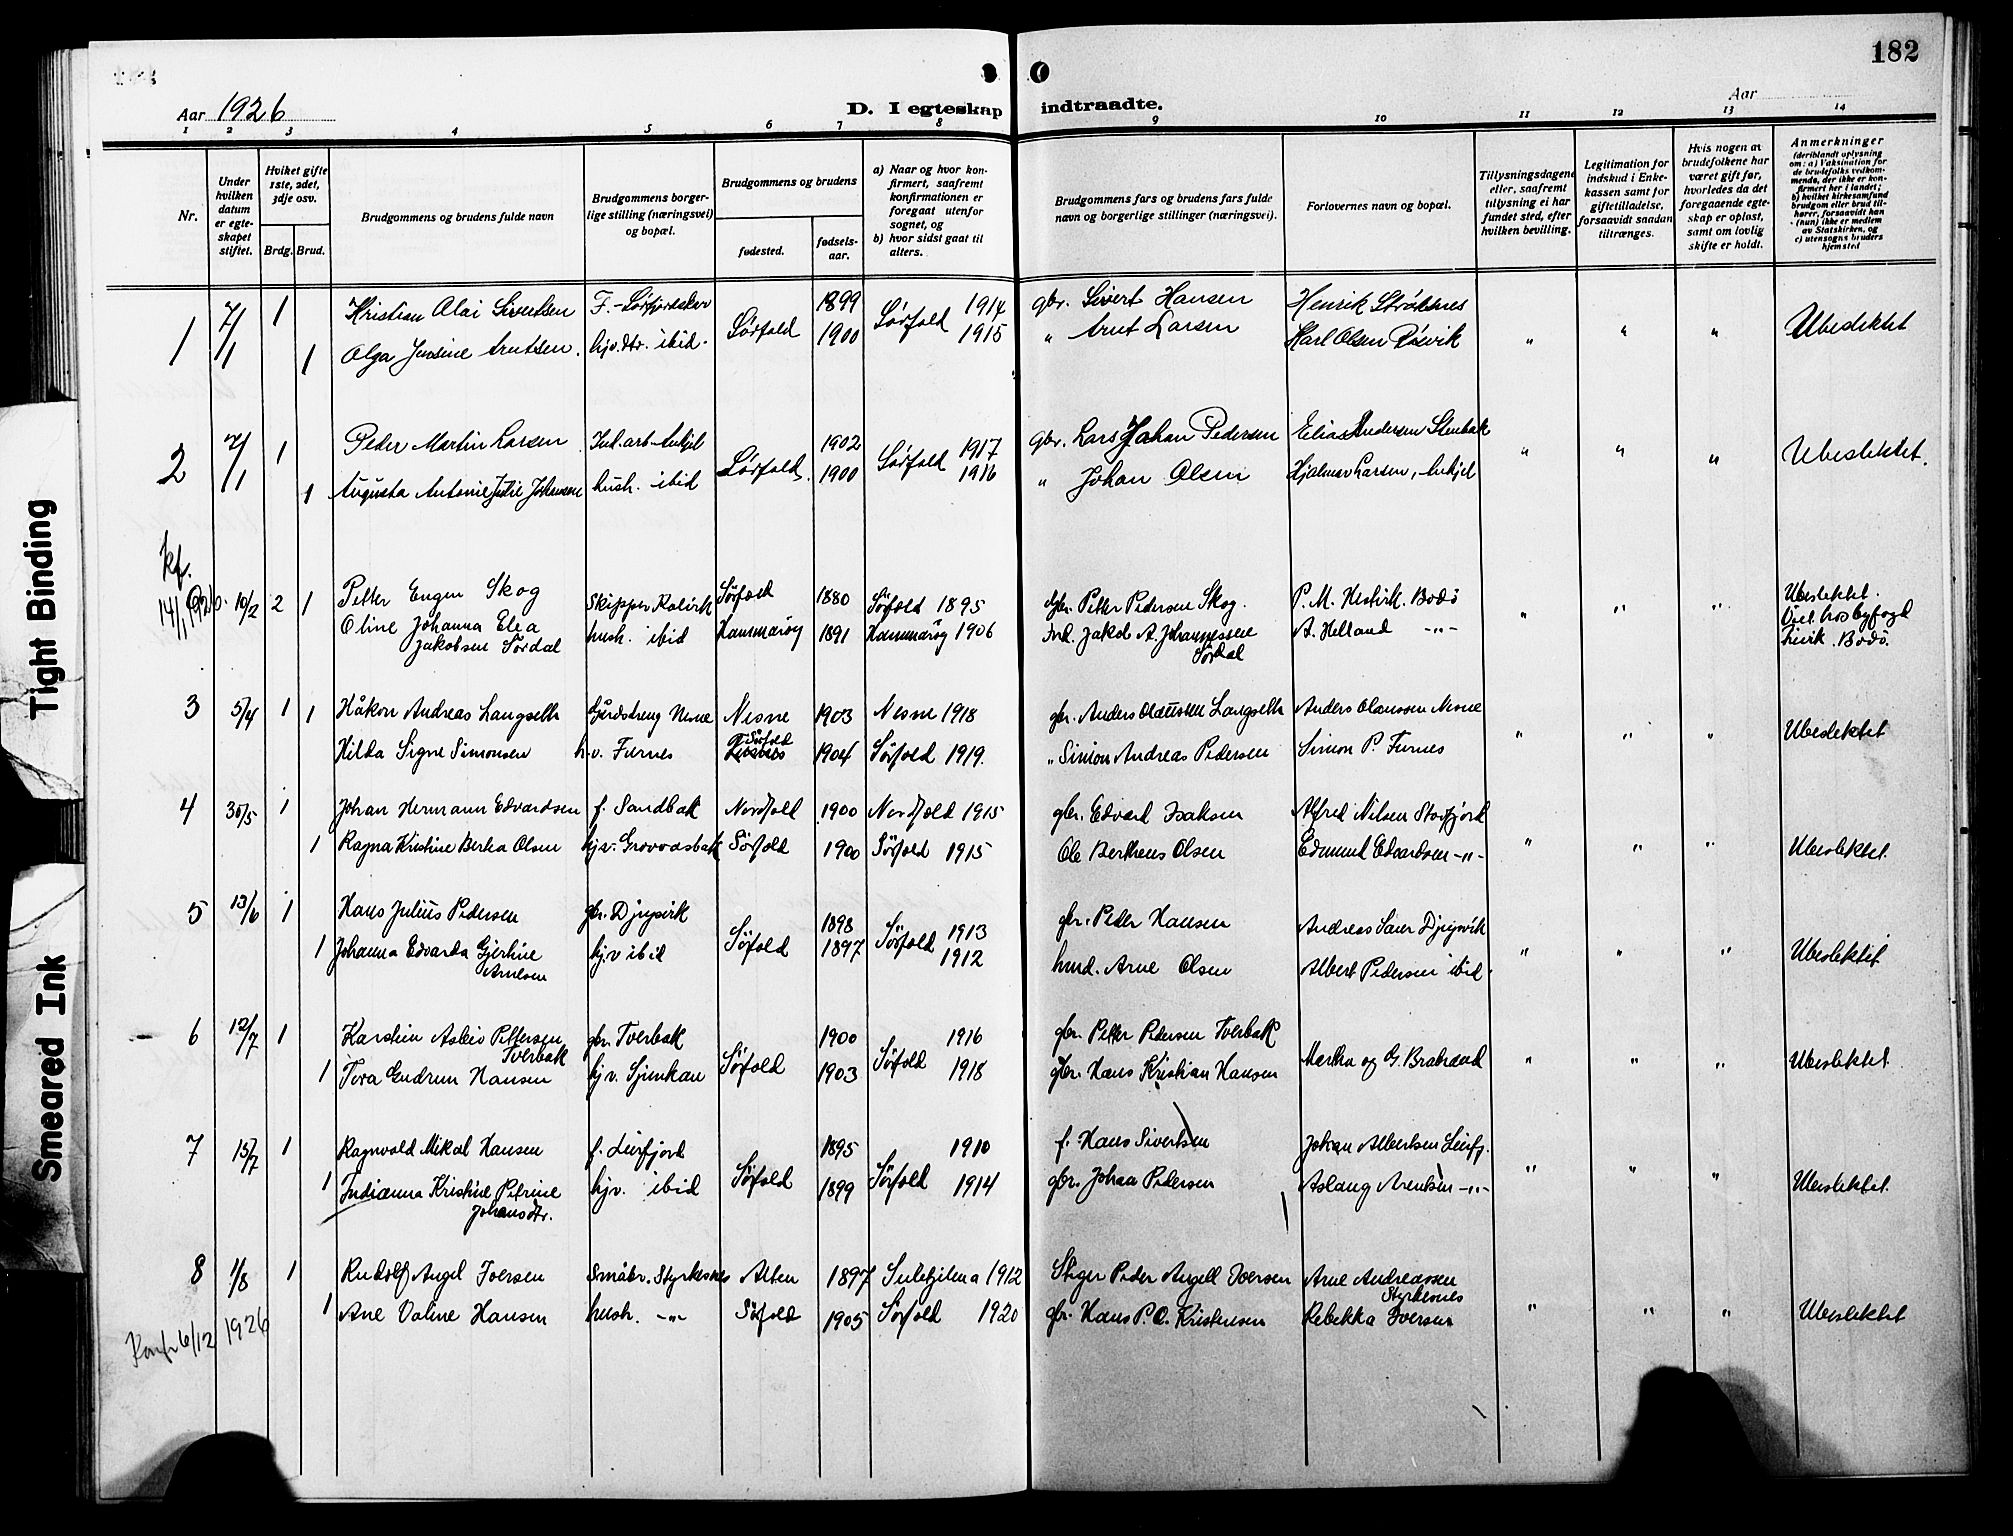 182
Aar 1926
D. I egteskap indtraadte.
Aar
1 2 3 4 5 6 7 8 9 10 11 12 13 14
Nr.
Under hvilken datum er egteskapet stiftet.
Hvilket gifte 1ste, 2det, 3dje osv.
Brdg. Brud.
Brudgommens og brudens fulde navn
Brudgommens borgerlige stilling (næringsvei) og bopæl.
Brudgommens og brudens
fødested.
fødselsaar.
a) Naar og hvor konfirmert, saafremt konfirmationen er foregaat utenfor sognet, og
b) hvor sidst gaat til alters.
Brudgommens fars og brudens fars fulde navn og borgerlige stillinger (næringsvei).
Forlovernes navn og bopæl.
Tillysningsdagene eller, saafremt tillysning ei har fundet sted, efter hvilken bevilling.
Legitimation for indskud i Enkekassen samt for giftetilladelse, forsaavidt saadan tiltrænges.
Hvis nogen av brudefolkene har været gift før, hvorledes da det foregaaende egteskap er opløst, samt om lovlig skifte er holdt.
Anmerkninger
(deriblandt oplysning om: a) Vaksination for de brudefolks vedkommende, der ikke er konfirmert her i landet; b) hvilket kirkesamfund brudgom eller brud tilhører, forsaavidt han (hun) ikke er medlem av Statskirken, og c) utensogns bruders hjemsted
1 7/1 1 Kristian Olai Sivertsen 1899 Sørfold 1914 gbr. Sivert Hansen Henrik Strøksnes
1 Olga Jensine Arntsen. hjv. dtr. ibid. Sørfold 1900 1915 " Arnt Larsen Karl Olsen Røsvik " " " Ubeslektet
2 7/1 1 Peder Martin Larsen Ind. arb. 1902 Sørfold 1917 gbr. Lars Johan Pedersen Elias Andersen Stenbak
1 Augusta Antonie Julie Johansen hush. ibid Sørfold. 1900 1916 " Johan Olsen Hjalmar Larsen, " " " Ubeslektet.
kf. 14/1 1926. 10/2 2 1 Petter Eugen Skog Skipper Kalvik Sørfold 1880 Sørfold 1895 gbr. Petter Pedersen Skog. P. M. Bodø " " " Ubeslektet.
Oline Johanna Elea Jakobsen Sørdal hush. ibid Hammarøy 1891 Hammarøy 1906 Ind. Jakob A. Johannessen Sørdal A. Helland -"- Viet hos byfogd Bodø.
3 5/4 1 1 Håkon Andreas Langseth Nesne Nesne 1903 Nesne 1918 gbr. Anders Olaussen Langseth Anders Olaussen Nesne
Hilda Signe Simonsen h.v. Furnes Sørfold 1904 Sørfold 1919. " Simon Andreas Pedersen Simon P. Furnes " " " Ubeslektet
4 30/5 1 Johan Hermann Edvardsen f. Sandbak Nordfold 1900 Nordfold 1915 gbr. Edvard Isaksen Alfred Nilsen Storfjord
1 Ragna Kristine Berka Olsen hjv. Sørfold 1900 Sørfold 1915 Ole Bertheus Olsen Edmund Edvardsen -"- " " " Ubeslektet.
5 13/6 1 Hans Julius Pedersen gbr. Djupvik 1898 1913 gbr. Peder Hansen Andreas Djupvik
1 Johanna Edvarda Gjertine Arnesen hjv ibid Sørfold 1897 Sørfold 1912 Arne Olsen Albert Pedersen ibid " " " Ubeslektet
6 12/7 1 Karstein Asbio Pettersen Tverbak gbr. Tverbak 1900 1916 gbr. Petter Pedersen Tverbak
1 Tora Gudrun Hansen hjv. Sjunkan Sørfold 1903 Sørfold 1918 gbr. Hans Kristian Hansen Martha og G. Bratrand " " " Ubeslektet
7 15/7 1 Ragnvald Mikal Hansen f. Leirfjord 1895 1910 f. Hans Sivertsen Johan Albertsen Leirfj.
1 Indianna Kristine Petrine Johansdtr. hjv. ibid Sørfold 1899 Sørfold 1914 gbr. Johan Pedersen Aslaug Arentsen -"- " " " Ubeslektet.
8 1/8 1 Rudolf Angel Iversen Småbr. Styrkesnes Alten 1897 1912 Peder Angell Iversen Arne Andreassen Styrkesnes
1 Ane Valine Hansen hush. -"- Sørfold 1905 Sørfold 1920 gbr. Hans P. O. Kristensen Rebekka Iversen " " " Ubeslektet
Konf. 6/12 1926
Tight Binding
Smeared Ink